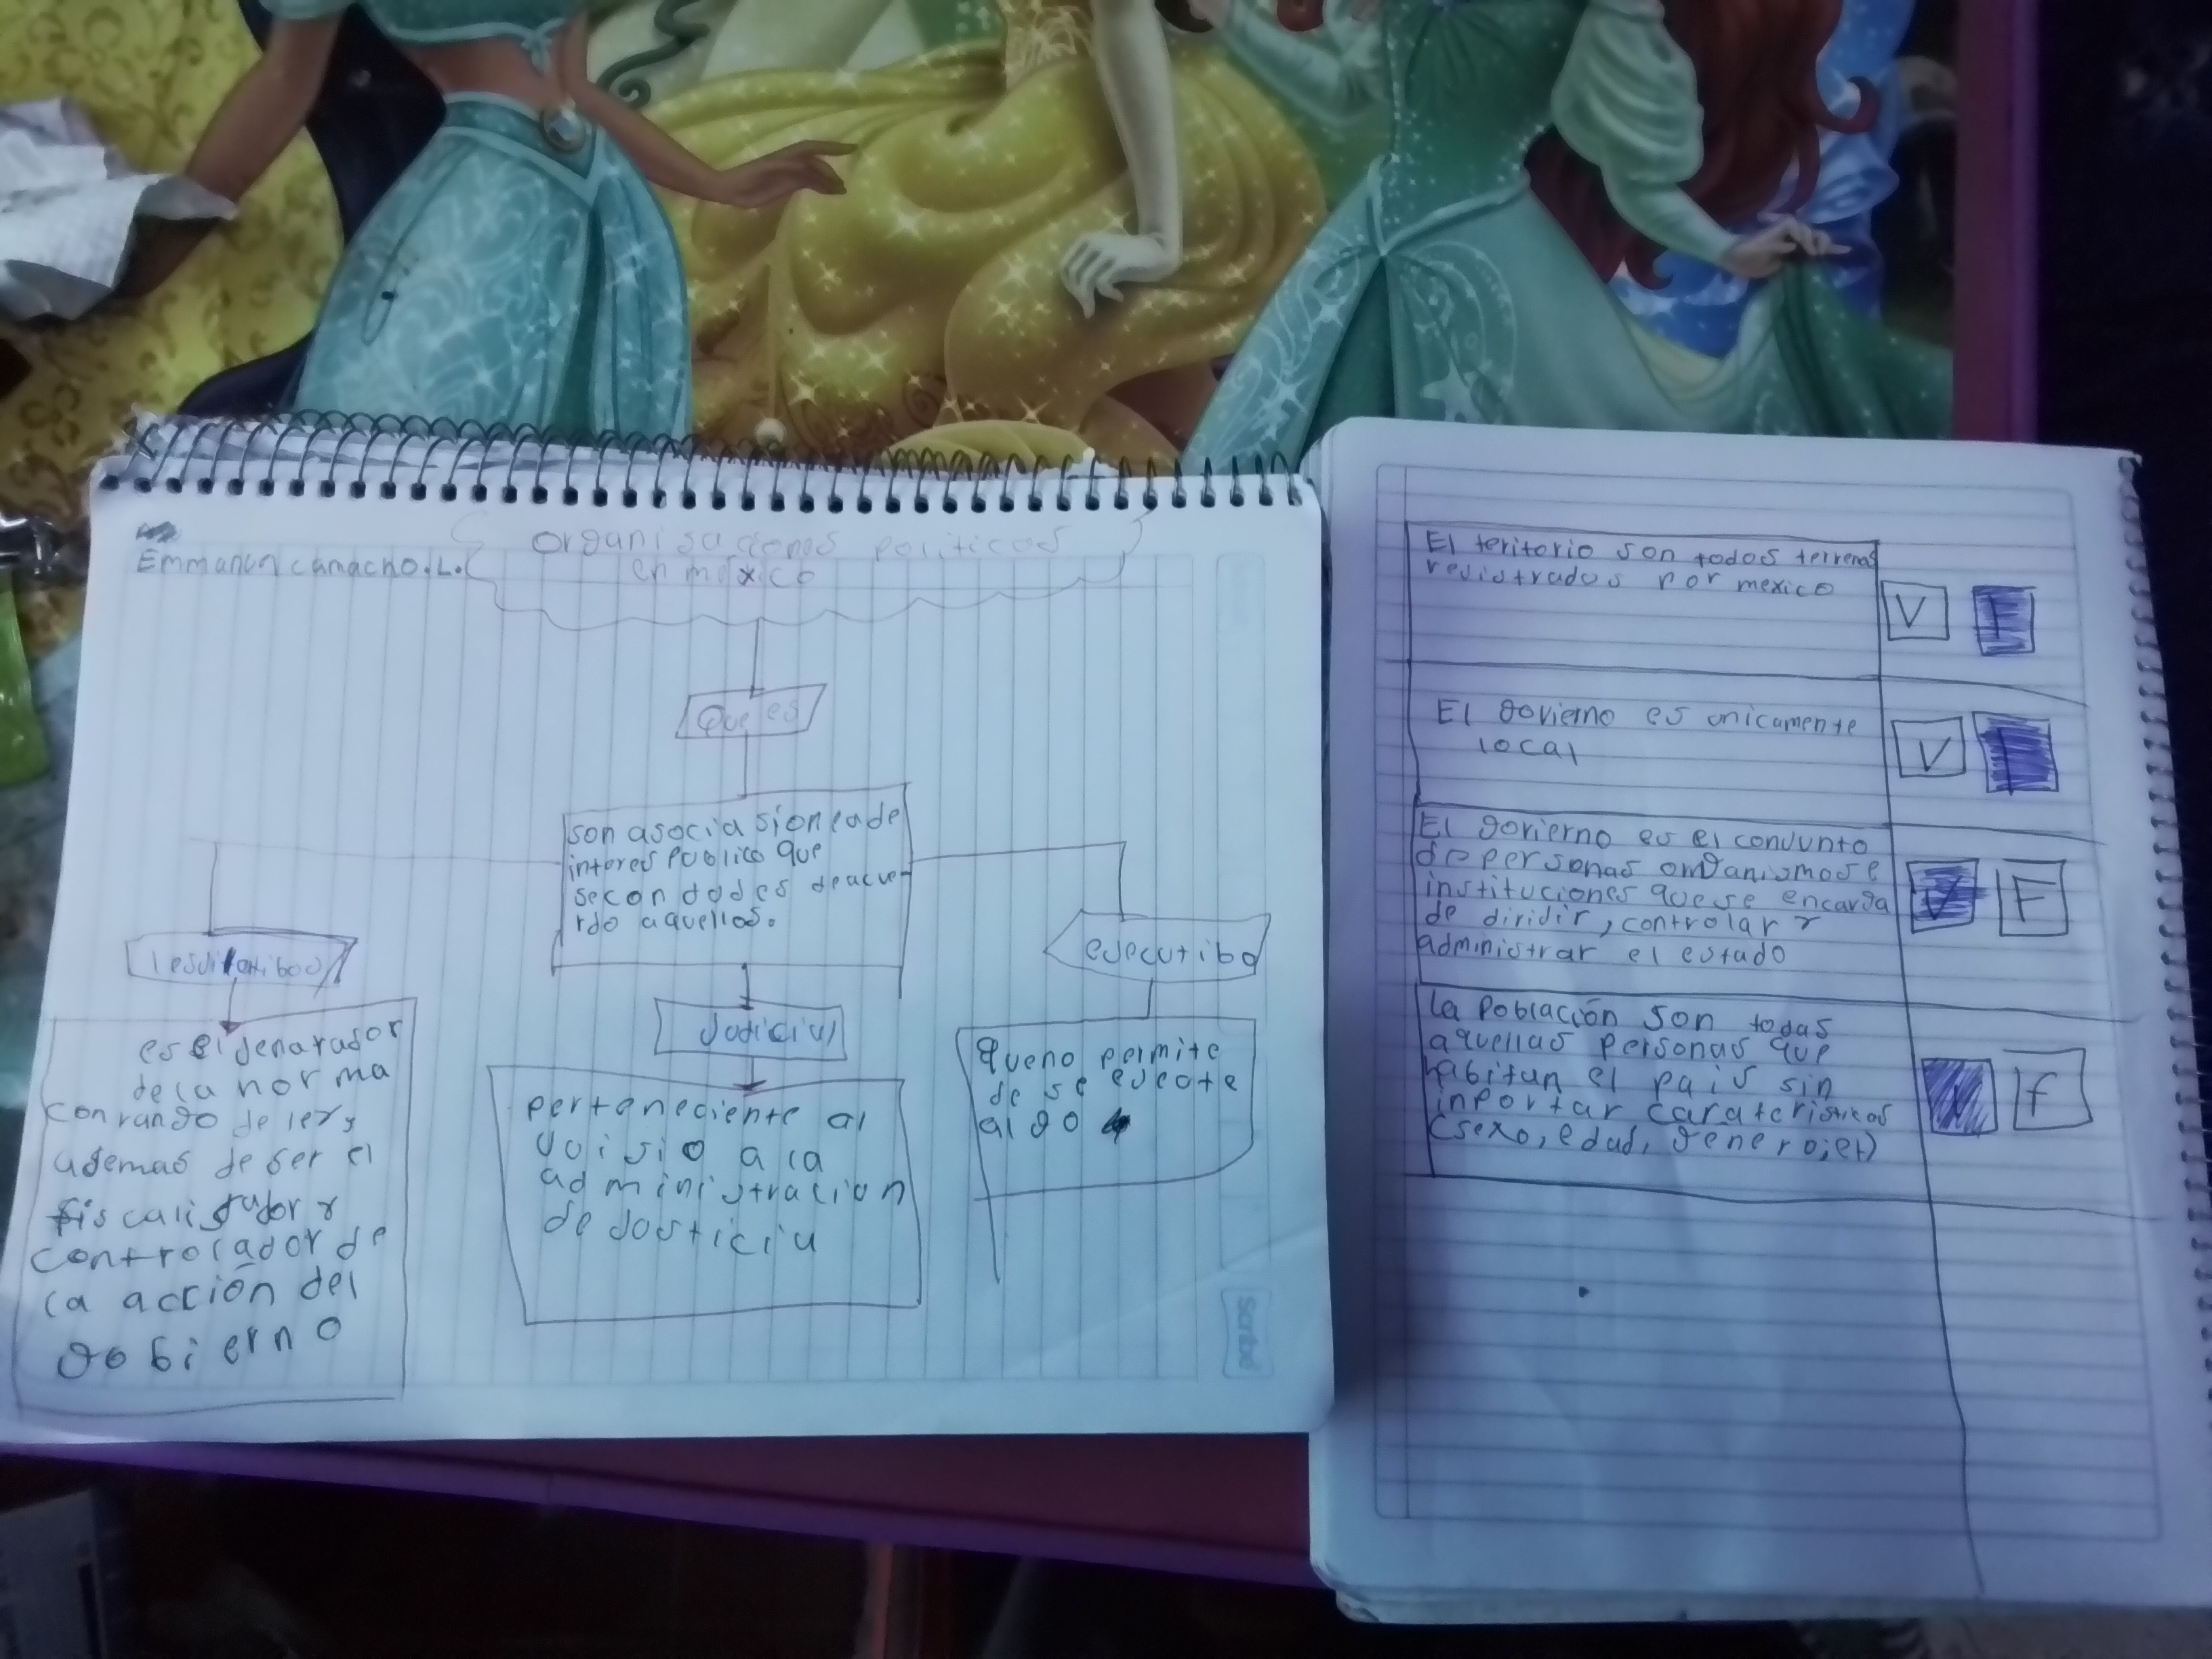 organisaciones politicas
en mexico
Emmanun camacho.L.
Que es
son asocia sionea de
interes publico que
se con d o d e s deacue-
rdo aquellos.
ejecutibo
es el jenarador
de la norma
con rango de ley y
ademas de ser el
fiscalisador y
controlador de
la acción del
gobierno
Judicial
perteneciente al
juisio a la
administracion
de justicia
que no permite
de se ejecute
algo
Scribe
El teritorio son todos terrenos
rejistrados por mexico
V F
El govierno es unicamente
local
V
El govierno es el conjunto
de personas organismos e
instituciones que se encarga
de dirigir, controlar y
administrar el estado
V F
la Población son todas
aquellas personas que
habitan el pais sin
inportar caratcteristicas
(sexo, edad, genero; et)
V f